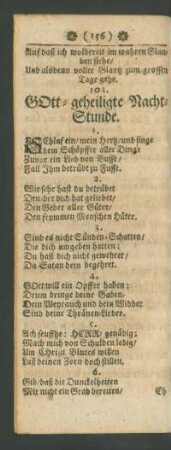 (156)
Auf daß ich wolbereit im wahren Glau-
ben stehe/
Und alsdenn voller Glantz zum grossen
Tage gehe.
102.
GOtt-geheiligte Nacht-
Stunde.
1.
SChlaf ein/ mein Hertz/ und singe
Dem Schöpffer aller Dinge
Zuvor ein Lied von Busse/
Fall Ihm betrübt zu Fusse.
2.
Wie sehr hast du betrübet
Den/ der dich hat geliebet/
Den Geber aller Güter/
Den frommen Menschen Hüter.
3.
Sind es nicht Sünden-Schatten/
Die dich umgeben hatten;
Du hast dich nicht gewehret/
Da Satan dein begehret.
4.
GOtt will ein Opffer haben;
Drum bringe deine Gaben/
Dein Weyrauch und dein Widder
Sind deine Thränen-Lieder.
5.
Ach seuffze: HERR/ genädig;
Mach mich von Schulden ledig/
Um Christi Blutes willen
Laß deinen Zorn doch stillen.
6.
Gib/ daß die Dunckelheiten
Mir nicht ein Grab bereiten/